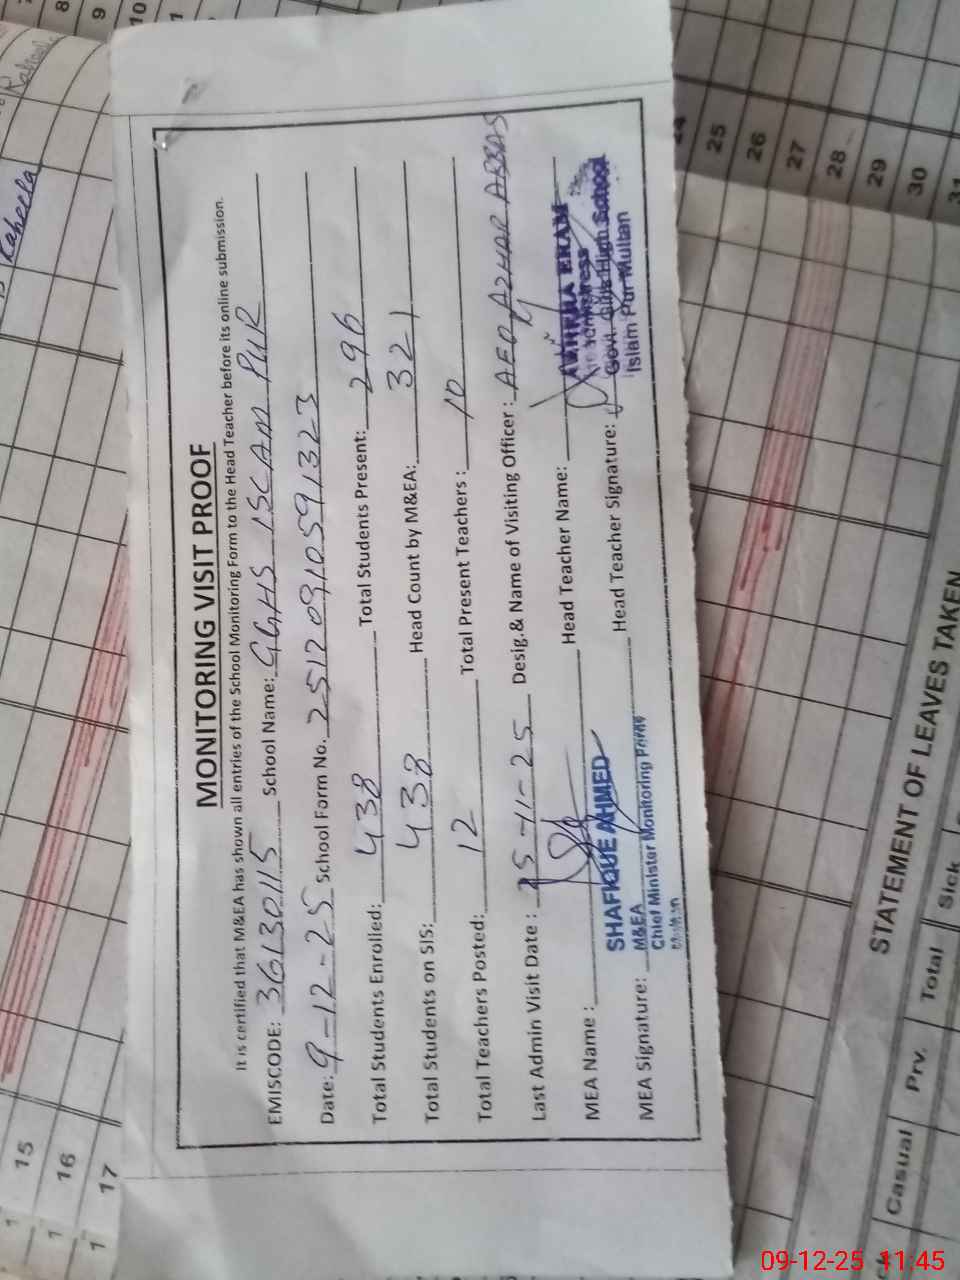 MONITORING VISIT PROOF
It is certified that M&EA has shown all entries of the School Monitoring Form to the Head Teacher before its online submission.
EMISCODE: 36130115 School Name: GGHS ISLAM PUR
Date: 9-12-25 School Form No. 25120910591323
Total Students Enrolled: 438 Total Students Present: 296
Total Students on SIS: 438 Head Count by M&EA: 321
Total Teachers Posted: 12 Total Present Teachers: 10
Last Admin Visit Date: 25-11-25 Desig.& Name of Visiting Officer: AEO AZHAR ABBAS
MEA Name: Head Teacher Name:
MEA Signature: Head Teacher Signature:
SHAFIQUE AHMED
M&EA
Chief Minister Monitoring Force
Multan
Headmistress
Govt. Girls High School
Islam Pur Multan
Raheela
8
9
10
15
16
17
24
25
26
27
28
29
30
31
STATEMENT OF LEAVES TAKEN
Casual Prv. Total Sick
09-12-25 11:45